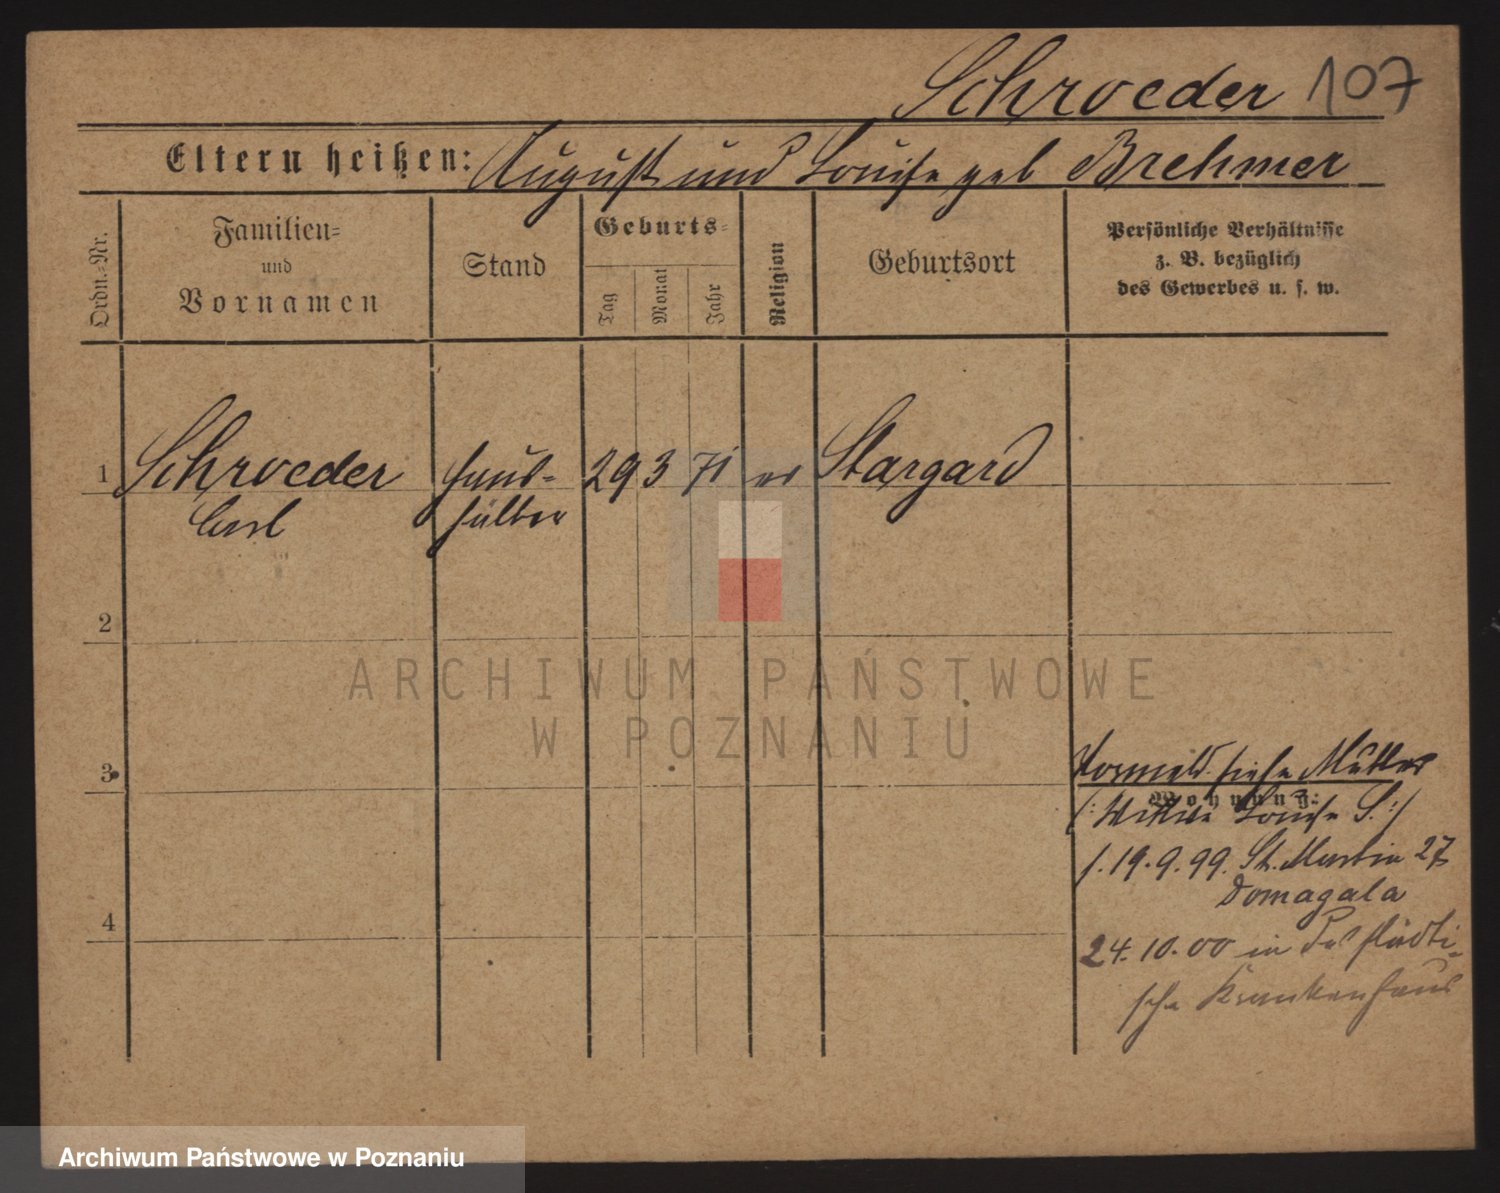 Schroeder 107
Eltern heißen: August und Louise geb Brehmer
Ordn.-Nr.
Familien-
und
Vornamen
Stand
Geburts-
Tag
Monat
Jahr
Religion
Geburtsort
Persönliche Verhältnisse
z. B. bezüglich
des Gewerbes u. s. w.
1 Schroeder 29 3 71 ev Stargard
2
ARCHIWUM PAŃSTWOWE
W POZNANIU
3 siehe Mutter
Wohnung:
(: Wittwe Louise S. :)
1. 19.9.99. St. Martin 27
Domagala
4
24.10.00 in das städti-
sche Krankenhaus
Archiwum Państwowe w Poznaniu